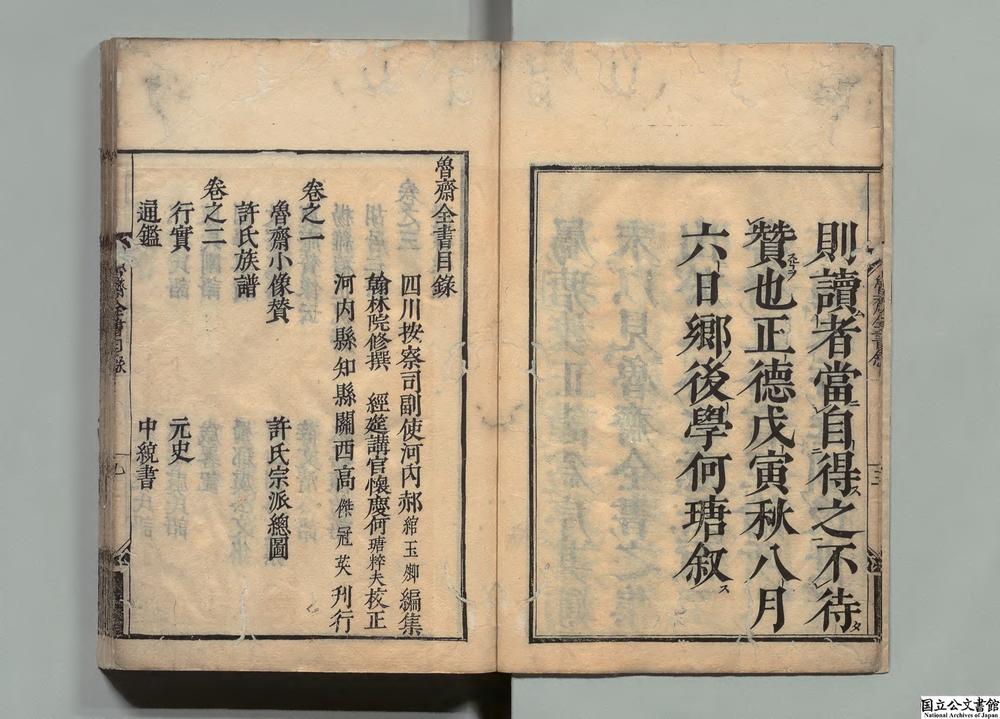 則讀者當自得之不待
贊也正德戊寅秋八月
六日鄉後學何瑭叙
魯齋全書目錄
四川按察司副使河内郝綰玉卿編集
翰林院修撰 經筵講官懷慶何瑭粹夫校正
河内縣知縣關西高傑冠英刊行
卷之一
魯齋小像贊 許氏宗派總圖
許氏族譜
卷之二
行實 元史
通鑑 中統書
國立公文書館
National Archives of Japan